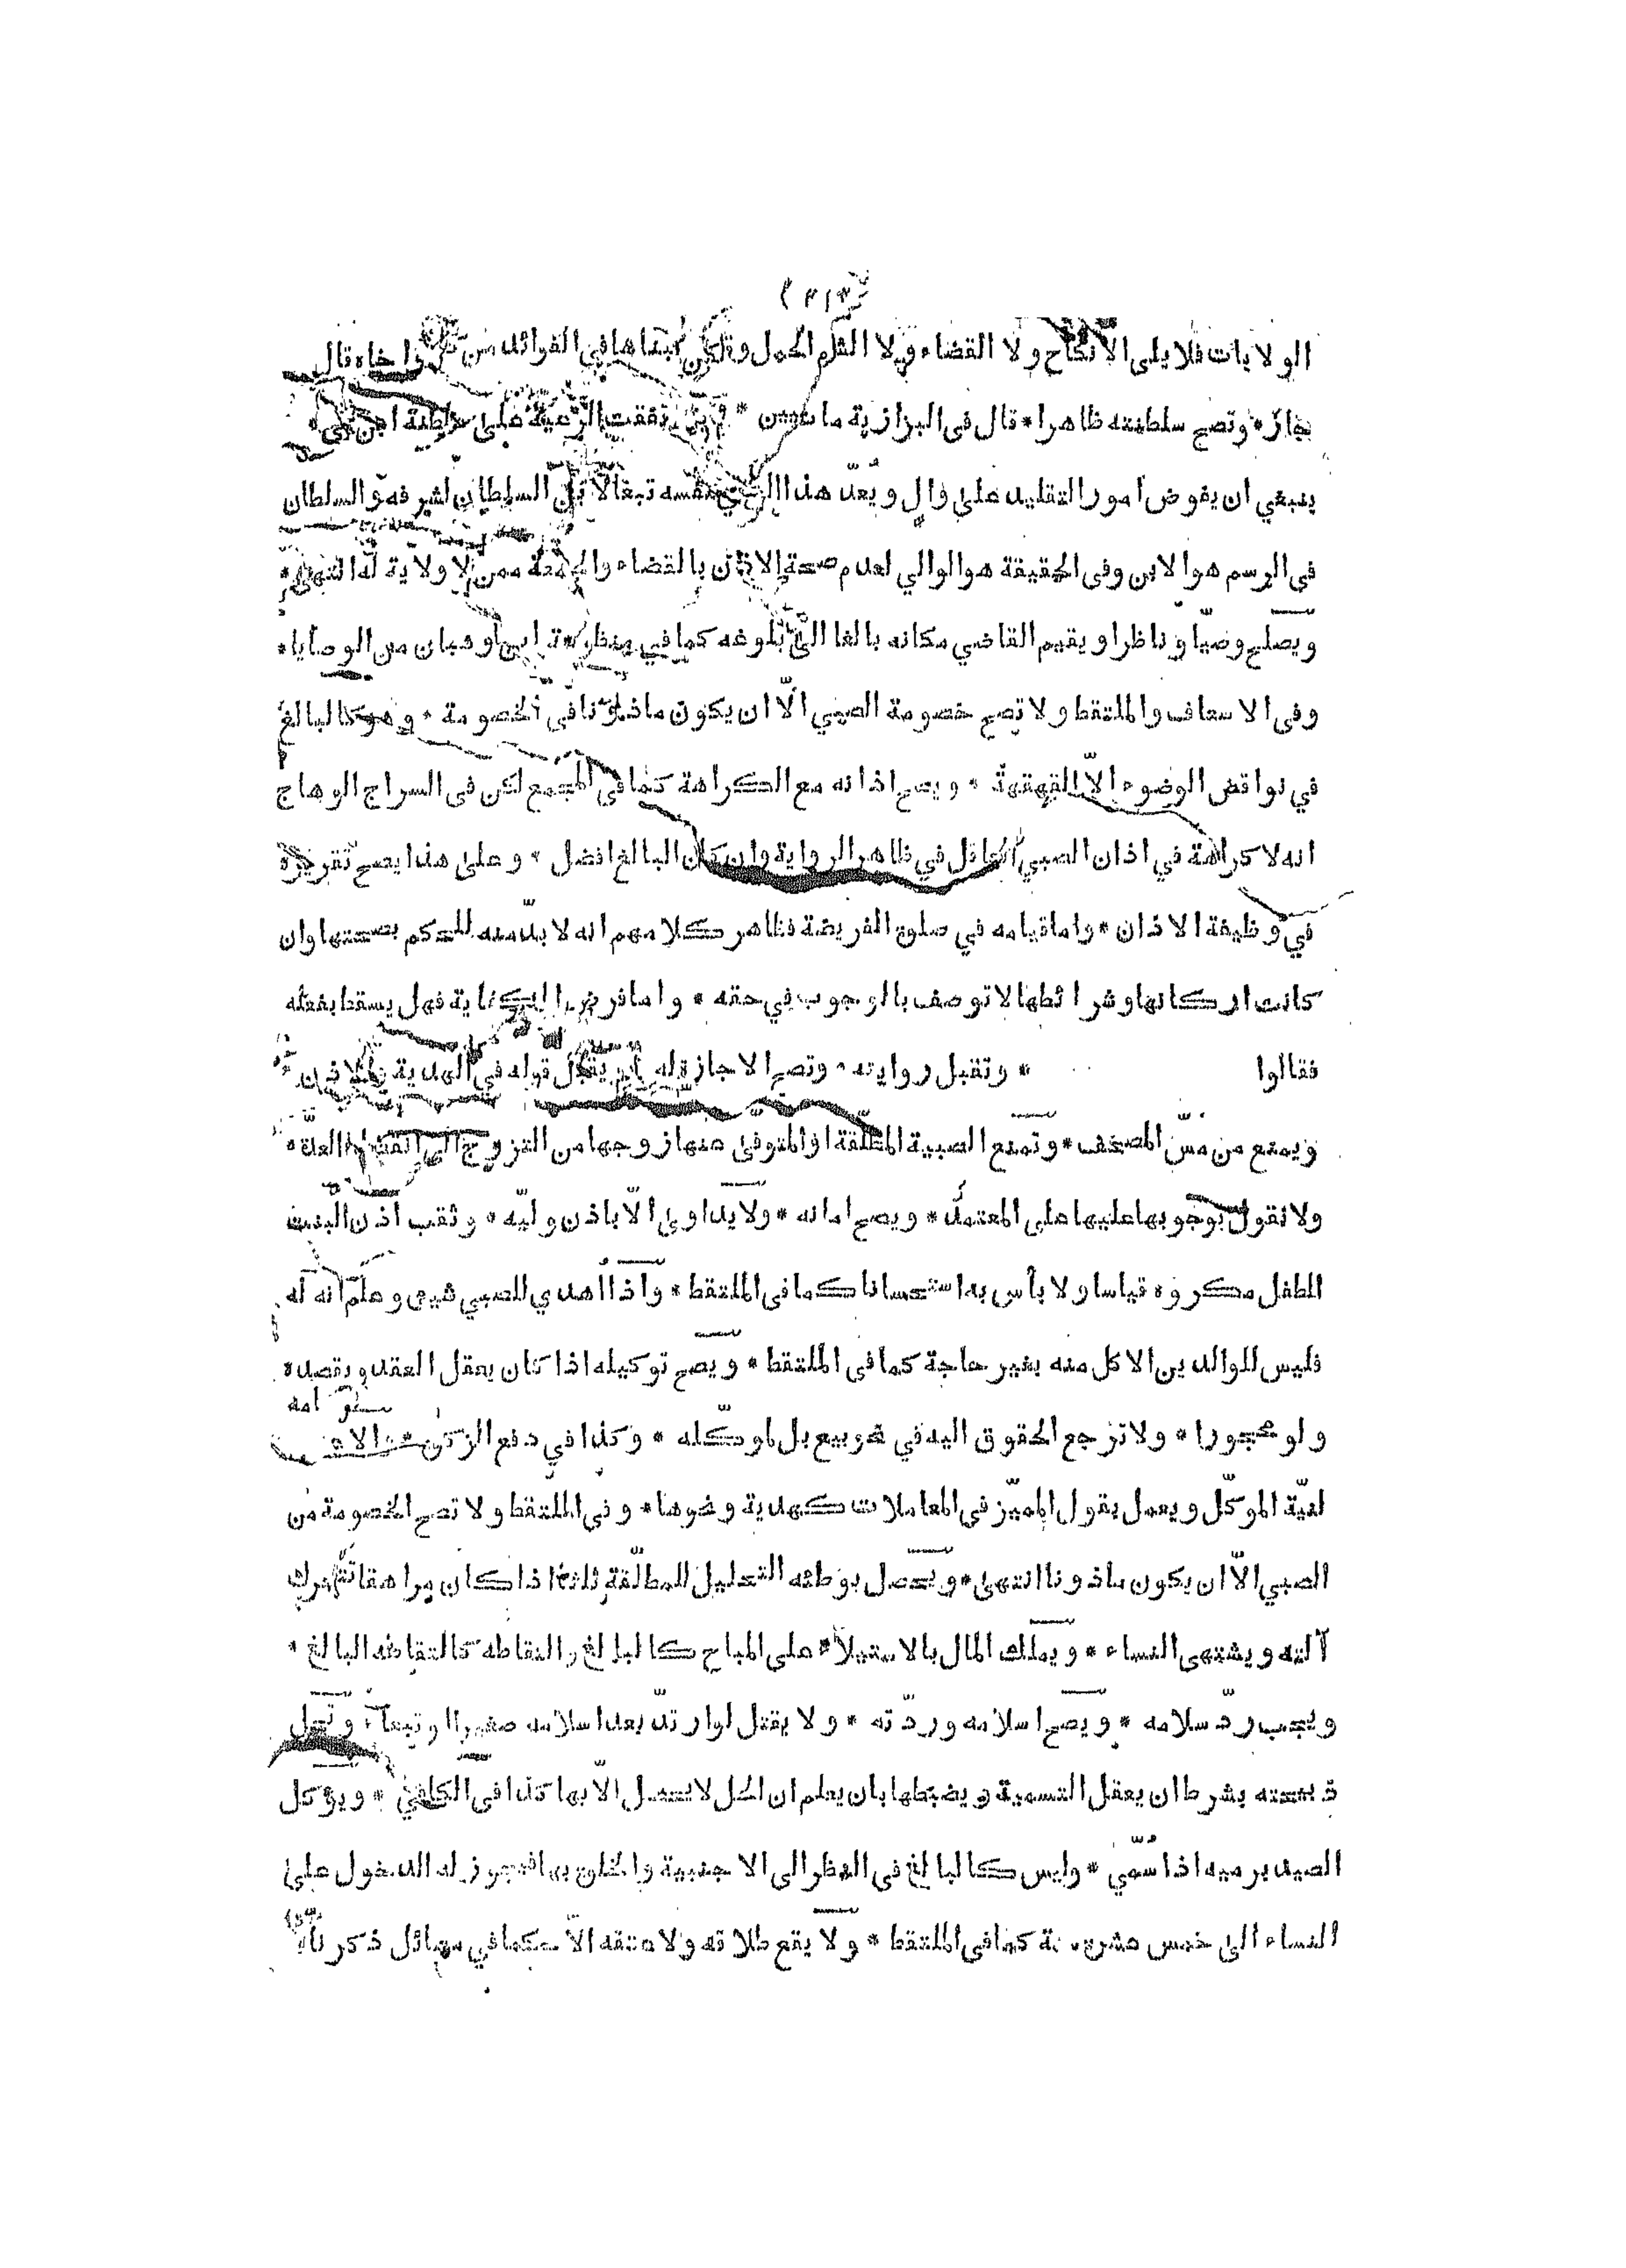 الولايات فلا يلى الانكاح ولا القضاء ولا في الفوائد من قال
جاز * وتصح سلطنته ظاهرا * قال فى البزازية مات * الرعية على سلطنة ابن
ينبغي ان يفوض امور التقليد على وال ويعدّ هذا الوالي نفسه تبعا لابن السلطان لشرفه والسلطان
فى الرسم هو الابن وفى الحقيقة هو الوالي لعدم صحة الاذن بالقضاء والجمعة ممن لا ولاية له انتهى *
ويصلح وصيّا وناظرا ويقيم القاضي مكانه بالغا الى بلوغه كما في منظومة ابن وهبان من الوصايا *
وفى الاسعاف والملتقط ولا تصح خصومة الصبي الّا ان يكون ماذونا فى الخصومة * وهو كالبالغ
في نواقض الوضوء الاّ القهقهة * ويصح اذانه مع الكراهة كما فى المجمع لكن فى السراج الوهاج
انه لا كراهة في اذان الصبي العاقل في ظاهر الرواية وان كان البالغ افضل * وعلى هذا يصح تقريره
في وظيفة الاذان * واما قيامه في صلوة الفريضة فظاهر كلامهم انه لا بدّ منه للحكم بصحتها وان
كانت اركانها وشرائطها لا توصف بالوجوب في حقه * واما فرض الكفاية فهل يسقط بفعله
فقالوا * وتقبل روايته * وتصح الاجازة له ويقبل قوله في الهدية والاذن *
ويمنع من مسّ المصحف * وتمنع الصبية المطلّقة او المتوفى عنها زوجها من التزوج الى انقضاء العدّة *
ولا نقول بوجوبها عليها على المعتمد * ويصح امانه * ولا يداوى الّا باذن وليّه * وثقب اذن البنت
الطفل مكروه قياسا ولا بأس به استحسانا كما فى الملتقط * واذا اهدي للصبي شيء وعلم انه له
فليس للوالدين الاكل منه بغير حاجة كما فى الملتقط * ويصح توكيله اذا كان يعقل العقد ويقصده
ولو محجورا * ولا ترجع الحقوق اليه في نحو بيع بل لموكّله * وكذا في دفع الزكوة
لنيّة الموكّل ويعمل بقول المميّز فى المعاملات كهدية ونحوها * وفى الملتقط ولا تصح الخصومة من
الصبي الاّ ان يكون ماذونا انتهى * ويحصل بوطئه التحليل للمطلّقة ثلثا اذا كان مراهقا تتحرك
آلته ويشتهى النساء * ويملك المال بالاستيلاء على المباح كالبالغ والتقاطه كالتقاطه البالغ *
ويجب ردّ سلامه * ويصح اسلامه وردّته * ولا يقتل لو ارتدّ بعد اسلامه صغيرا او تبعا * وتحل
ذبيحته بشرط ان يعقل التسمية ويضبطها بان يعلم ان الحل لا يحصل الاّ بها كذا فى الكافي * ويؤكل
الصيد برميه اذا سمّي * وليس كالبالغ فى النظر الى الاجنبية والخلوة بها فيجوز له الدخول على
النساء الى خمس عشرة سنة كما فى الملتقط * ولا يقع طلاقه ولا عتقه الاّ حكما في مسائل ذكرناها